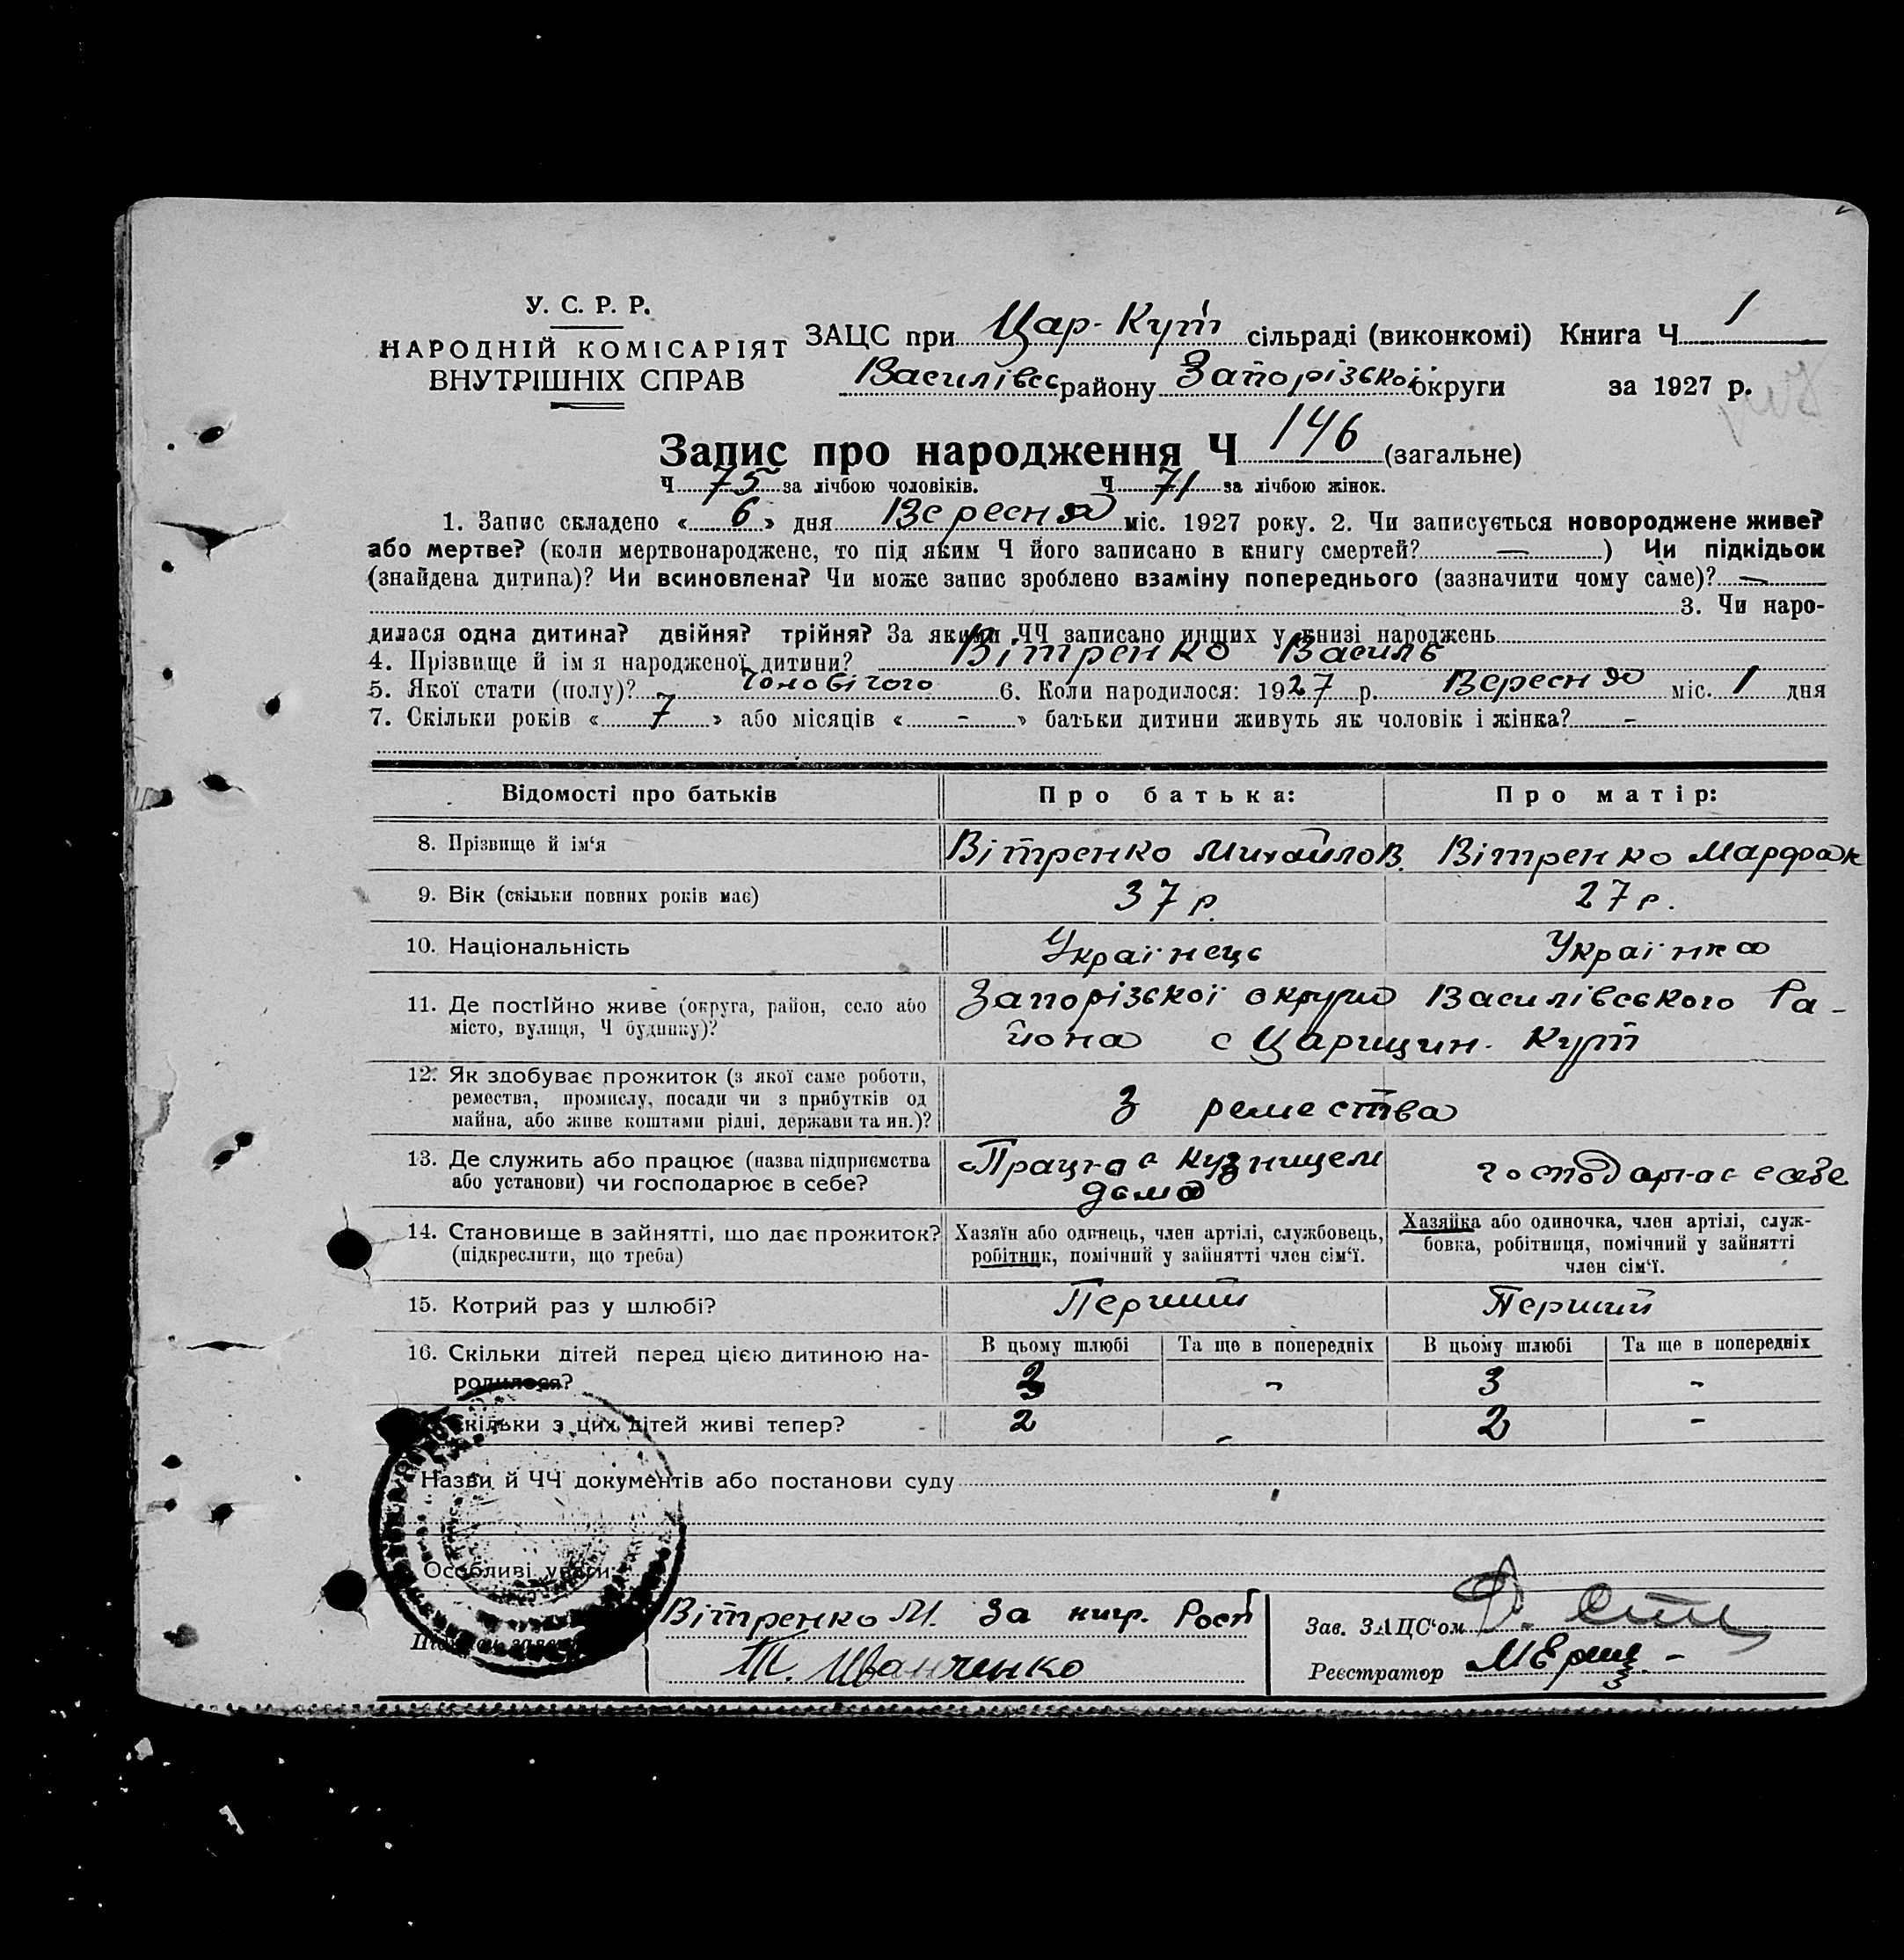 У. С. Р. Р.
НАРОДНІЙ КОМІСАРІЯТ
ВНУТРІШНІХ СПРАВ
ЗАЦС при Цар-Кут сільраді (виконкомі) Книга Ч. 1
Василівсь району Запорізької округи за 1927 р.
Запис про народження Ч 146 (загальне)
Ч 75 за лічбою чоловіків. Ч 71 за лічбою жінок.
1. Запис складено «6» дня Вересня міс. 1927 року. 2. Чи записується новороджене живе?
або мертве? (коли мертвонароджене, то під яким Ч його записано в книгу смертей? —) Чи підкідьок
(знайдена дитина)? Чи всиновлена? Чи може запис зроблено взаміну попереднього (зазначити чому саме)? —
3. Чи наро-
дилася одна дитина? двійня? трійня? За якими ЧЧ записано инших у книзі народжень
4. Прізвище й ім я народженої дитини? Вітренко Василь
5. Якої стати (полу)? Чоловічого 6. Коли народилося: 1927 р. Вересня міс. 1 дня
7. Скільки років «7» або місяців «-» батьки дитини живуть як чоловік і жінка? -
Відомості про батьків Про батька: Про матір:
8. Прізвище й ім‘я Вітренко Михайло В. Вітренко Марфа
9. Вік (скільки повних років має) 37 р. 27 р.
10. Національність Українець Українка
11. Де постІйно живе (округа, район, село або Запорізської округи Василівського Ра-
місто, вулиця, Ч будинку)? йона с Царицин. Кут
12. Як здобуває прожиток (з якої саме роботи,
ремества, промислу, посади чи з прибутків од З ремества
майна, або живе коштами рідні, держави та ин.)?
13. Де служить або працює (назва підприємства Працює Кузницем господарює в себе
або установи) чи господарює в себе? дома
14. Становище в зайнятті, що дає прожиток? Хазяїн або одинець, член артілі, службовець, Хазяйка або одиночка, член артілі, служ-
(підкреслити, що треба) робітник, помічний у зайнятті член сім‘ї. бовка, робітниця, помічний у зайнятті
член сім‘ї.
15. Котрий раз у шлюбі? Перший Перший
16. Скільки дітей перед цією дитиною на- В цьому шлюбі Та ще в попередніх В цьому шлюбі Та ще в попередніх
родилося? 3 - 3 -
Скільки з цих дітей живі тепер? 2 - 2 -
Назви й ЧЧ документів або постанови суду
Особливі уваги:
Вітренко М. За
Т. Іванченко
Зав. ЗАЦС‘ом
Реєстратор